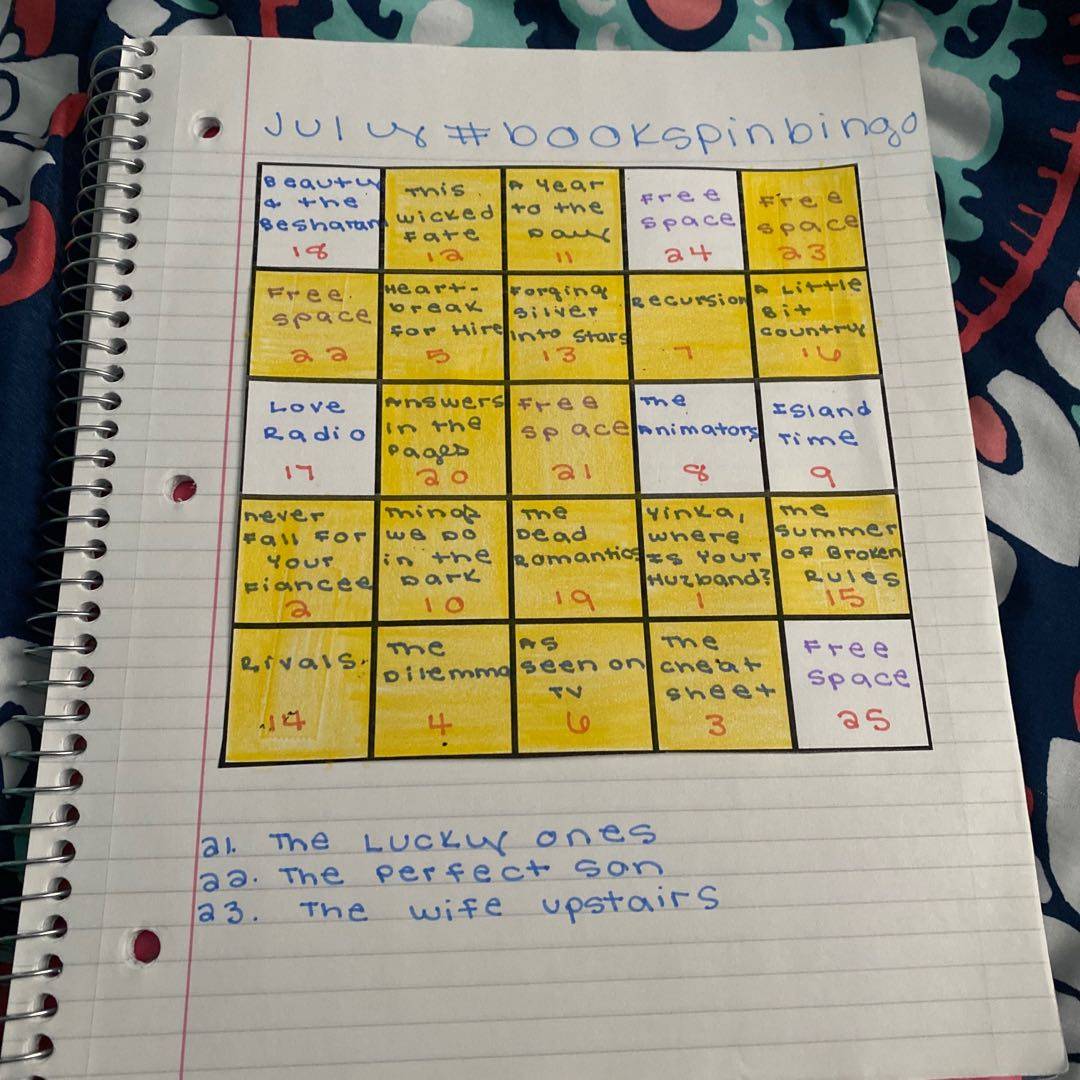 July #bookspinbingo
Beauty
& the
Besharam
18
This
wicked
Fate
12
A Year
to the
Day
11
Free
space
24
Free
space
23
Free
space
22
Heart-
break
for Hire
5
Forging
Silver
Into Stars
13
Recursion
7
A Little
Bit
Country
16
Love
Radio
17
Answers
in the
Pages
20
Free
space
21
The
Animators
8
Island
Time
9
Never
Fall For
Your
Fiancee
2
Things
We Do
in the
Dark
10
The
Dead
Romantics
19
Yinka,
where
Is Your
Huzband?
1
The
Summer
of Broken
Rules
15
Rivals
14
The
Dilemma
4
As
seen on
TV
6
The
cheat
sheet
3
Free
space
25
21. The Lucky ones
22. The perfect son
23. The wife upstairs